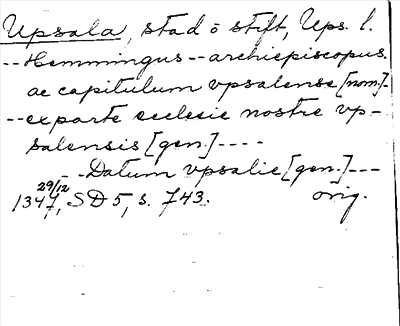 Upsala, stad o stift, Ups. l.
-- Hemmingus -- archiepiscopus
ac capitulum vpsalense [nom.] -
-- ex parte ecclesie nostre vp-
salensis [gen.] ----
-- Datum vpsalie [gen.] ---
29/12
1347, SD 5, s. 743. orig.